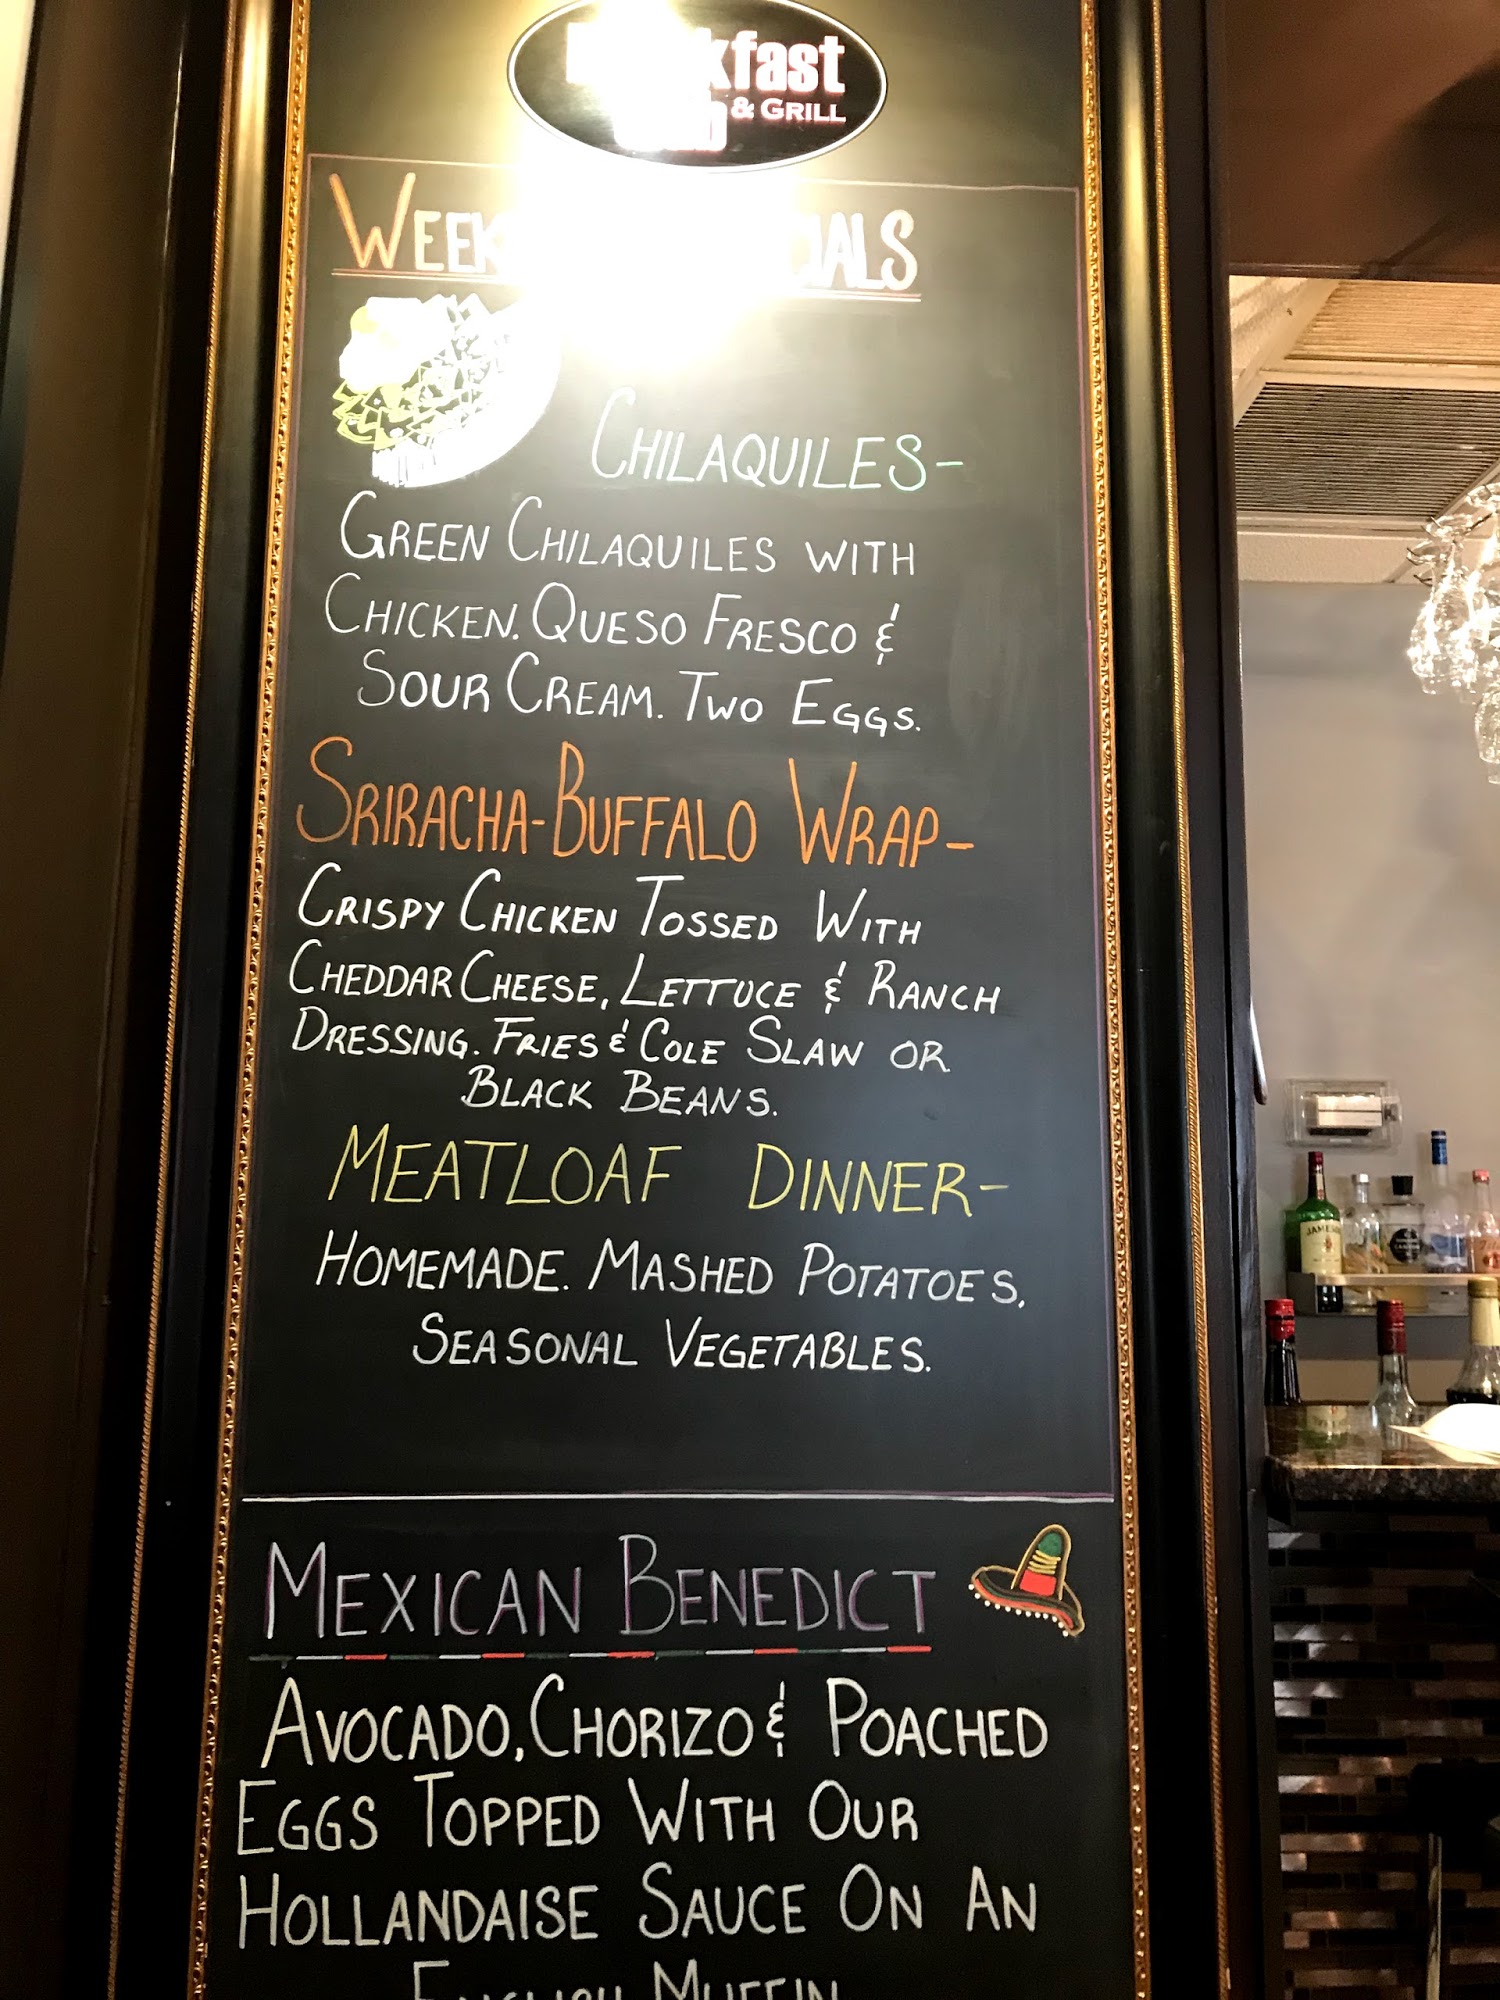 & GRILL
CHILAQUILES-
GREEN CHILAQUILES WITH
CHICKEN. QUESO FRESCO &
SOUR CREAM. TWO EGGS.
SRIRACHA-BUFFALO WRAP-
CRISPY CHICKEN TOSSED WITH
CHEDDAR CHEESE, LETTUCE & RANCH
DRESSING. FRIES & COLE SLAW OR
BLACK BEANS.
MEATLOAF DINNER-
HOMEMADE. MASHED POTATOES,
SEASONAL VEGETABLES.
MEXICAN BENEDICT
AVOCADO, CHORIZO & POACHED
EGGS TOPPED WITH OUR
HOLLANDAISE SAUCE ON AN
ENGLISH MUFFIN